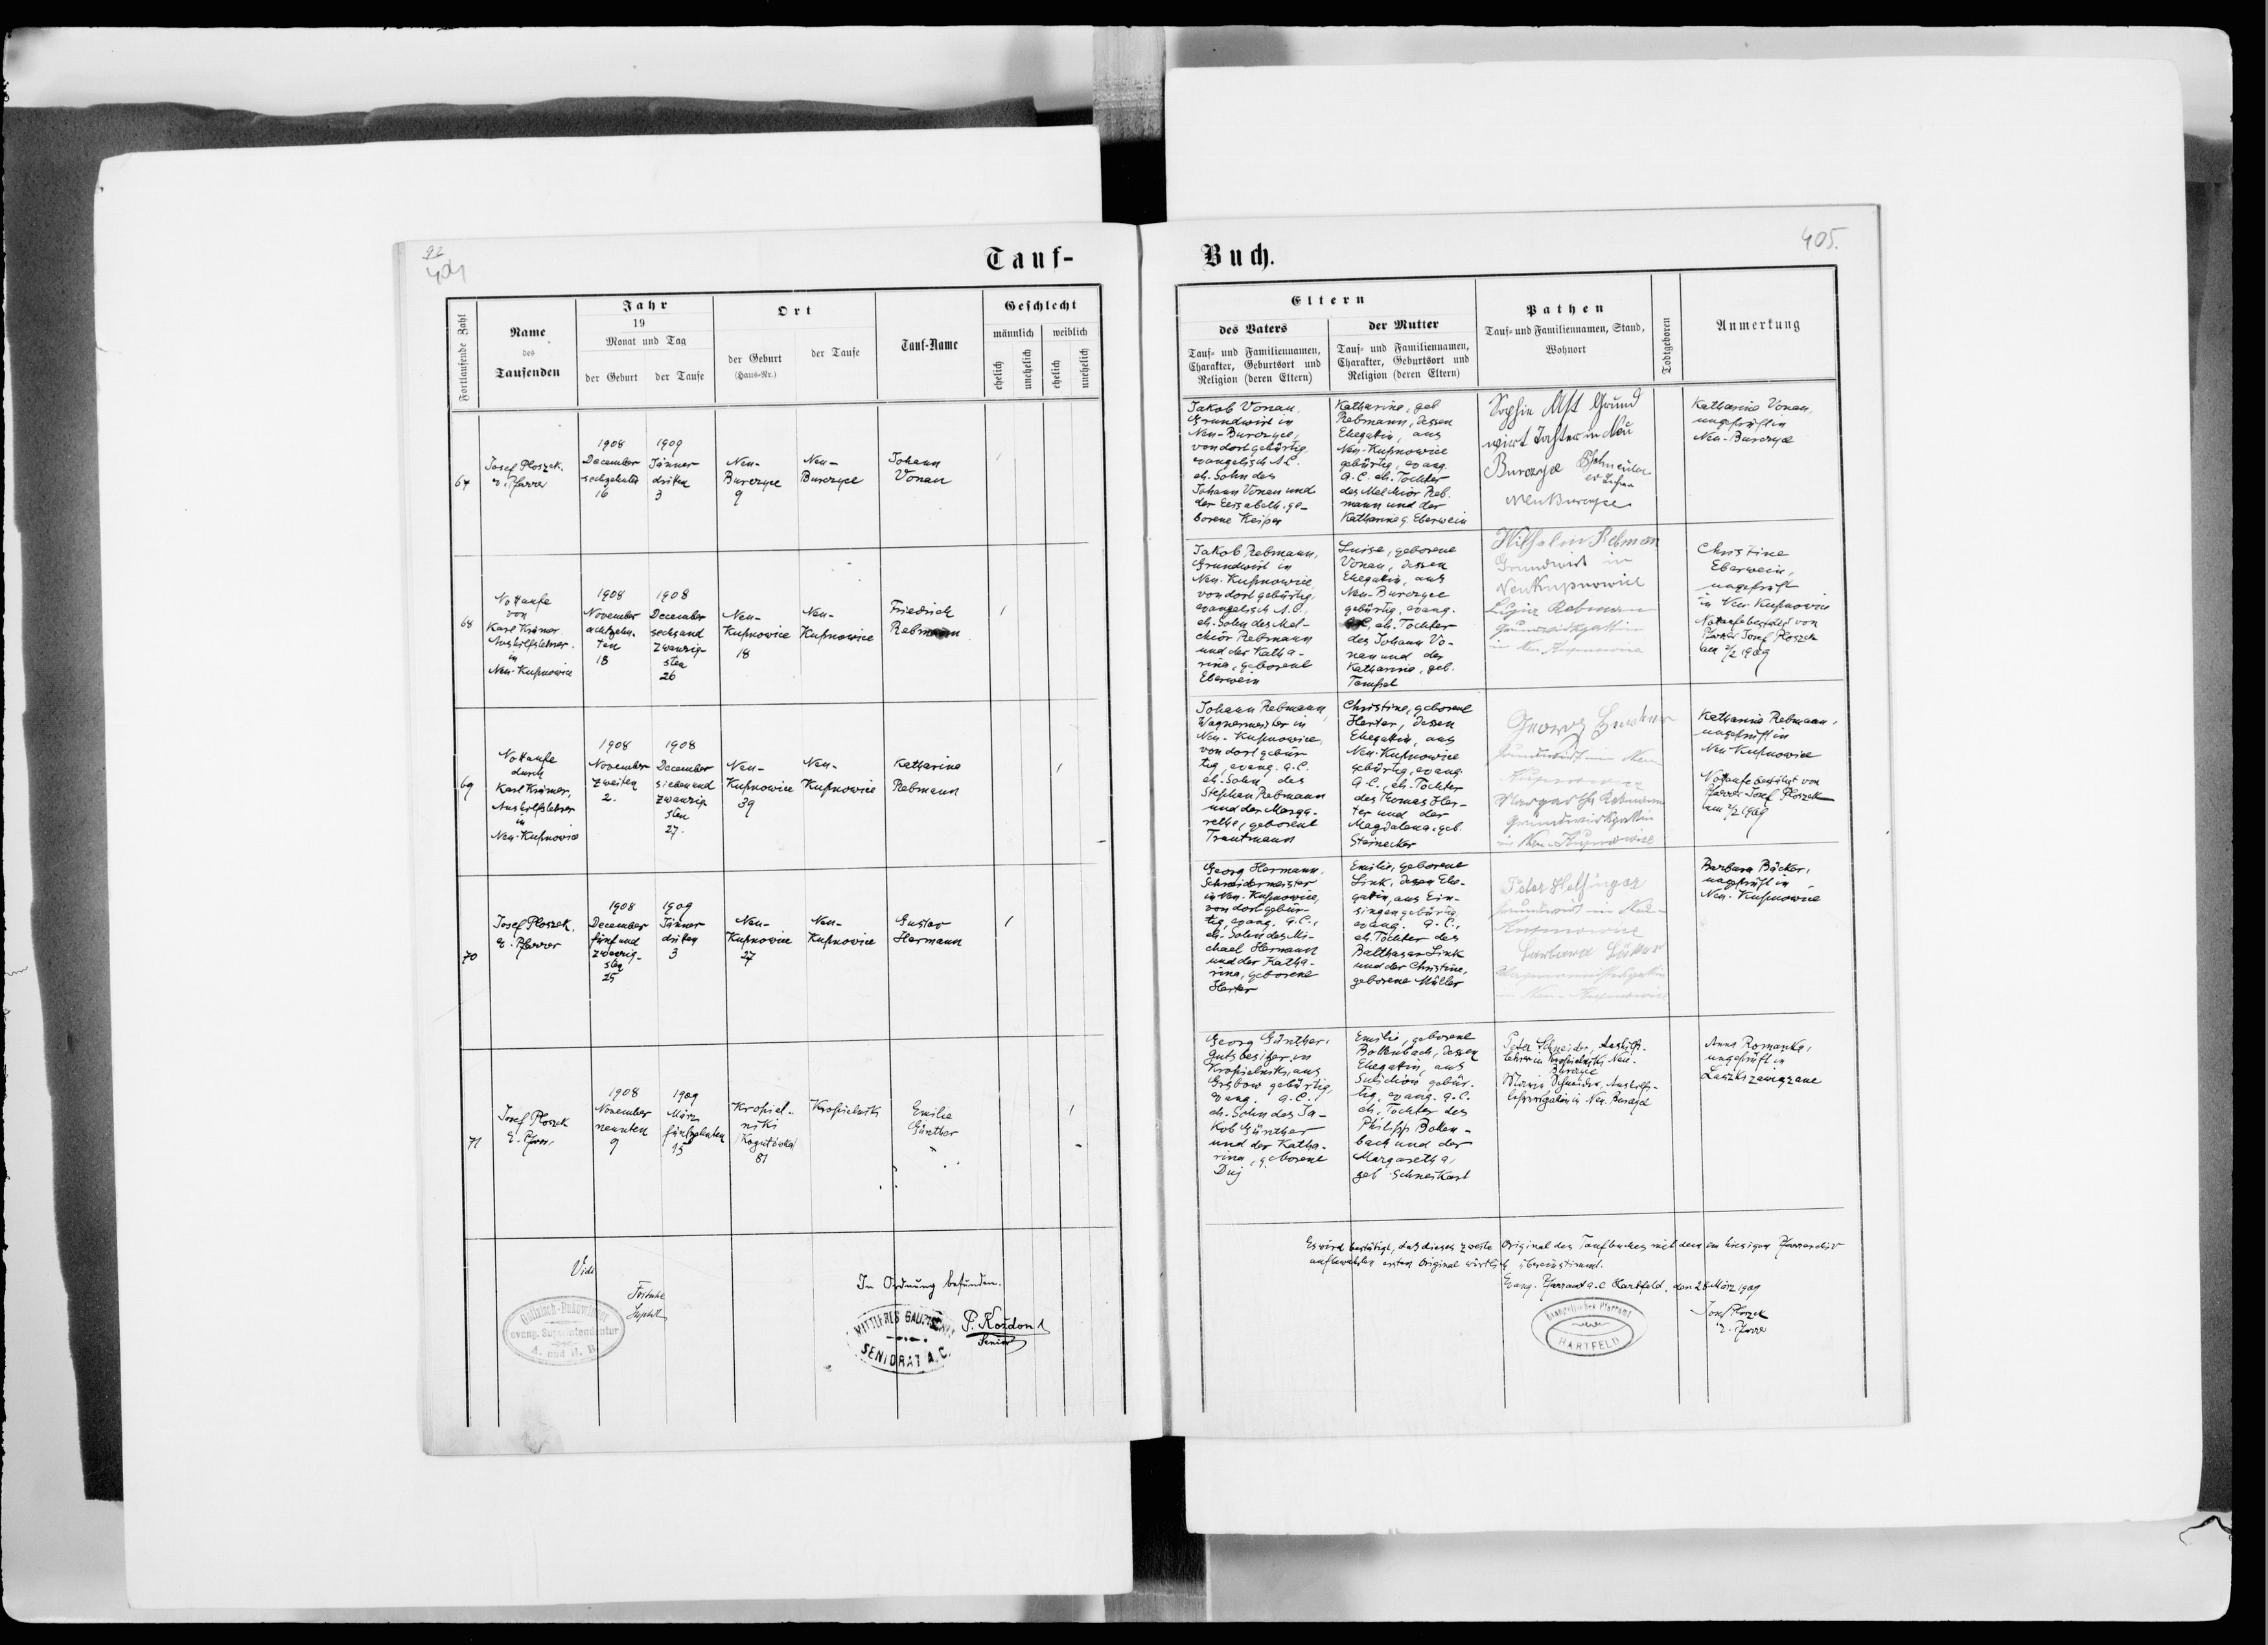 92
404
Tauf-
Fortlaufende Zahl
Name
des
Taufenden
Jahr
19
Monat und Tag
der Geburt
der Taufe
Ort
der Geburt
(Haus-Nr.)
der Taufe
Tauf-Name
Geschlecht
männlich
weiblich
ehelich
unehelich
ehelich
unehelich
67
Josef Ploszek,
e. Pfarrer
1908
December
sechzehnten
16
1909
Jänner
dritten
3
Neu-
Burczyce
9
Neu-
Burczyce
Johann
Vonau
68
Nottaufe
von
Karl Krämer
Aushilfslehrer
in
Neu-Kupnowice
1908
November
achtzehn-
ten
18
1908
December
sechsund
zwanzig-
sten
26
Neu-
Kupnowice
18
Neu-
Kupnowice
Friedrich
Rebmann
69
Nottaufe
durch
Karl Krämer,
Aushilfslehrer
in
Neu-Kupnowice
1908
November
zweiten
2.
1908
December
siebenund
zwanzig
sten
27.
Neu-
Kupnowice
39
Neu-
Kupnowice
Katharina
Rebmann
70
Josef Ploszek,
e. Pfarrer
1908
December
fünfund
zwanzig-
sten
25
1909
Jänner
dritten
3
Neu-
Kupnowice
27
Neu-
Kupnowice
Gustav
Hermann
71
Josef Ploszek
e. Pfarrer
1908
November
neunten
9
1909
März
fünfzehnten
15
Kropiel-
niki
(Kogutówka)
81
Kropielniki
Emilie
Günther
Vidi
Galizisch-Bukowinaer
evang. Superintendentur
A. und H. B.
In Ordnung befunden.
MITTLERES GALIZISCHES
SENIORAT A.C.
P. Kozdon
Senior
Buch.
405.
Eltern
des Vaters
Tauf- und Familiennamen,
Charakter, Geburtsort und
Religion (deren Eltern)
der Mutter
Tauf- und Familiennamen,
Charakter, Geburtsort und
Religion (deren Eltern)
Pathen
Tauf- und Familiennamen, Stand,
Wohnort
Todtgeboren
Anmerkung
Jakob Vonau,
Grundwirt in
Neu-Burczyce,
von dort gebürtig,
evangelisch A.C.
eh. Sohn des
Johann Vonau und
der Elisabeth, ge-
borene Keiper
Katharine, geb
Rebmann, dessen
Ehegattin, aus
Neu-Kupnowice
gebürtig, evang.
A.C. eh. Tochter
des Melchior Reb-
mann und der
Katharine g. Eberwein
Sophie Ast Grund
wirt Tochter in Neu
Burczyce
Neu Burczyce
Katharina Vonau,
ungeprüft in
Neu-Burczyce
Jakob Rebmann,
Grundwirt in
Neu-Kupnowice,
von dort gebürtig,
evangelisch A.C.,
eh. Sohn des Mel-
chior Rebmann
und der Katha-
rina, geborene
Eberwein
Luise, geborene
Vonau, dessen
Ehegattin, aus
Neu-Burczyce
gebürtig, evang.
A.C., eh. Tochter
des Johann Vo-
nau und der
Katharina, geb.
Tempel
Wilhelm Rebmann
Grundwirt in
Neu Kupnowice
Rebmann
Grundwirtsgattin
in Neu-Kupnowice
Christine
Eberwein,
ungeprüft
in Neu-Kupnowice
Nottaufe bestätigt von
Pfarrer Josef Ploszek
am 2/2 1909
Johann Rebmann,
Wagnermeister in
Neu-Kupnowice,
von dort gebür-
tig, evang. A.C.
eh. Sohn des
Stephan Rebmann
und der Marga-
rethe, geborene
Trautmann
Christine, geborene
Harter, dessen
Ehegattin, aus
Neu-Kupnowice
gebürtig, evang.
A.C., eh. Tochter
des Thomas Har-
ter und der
Magdalena, geb.
Steinecker
Georg
Grundwirt in Neu
Kupnowice
Margarethe Rebmann
Grundwirtsgattin
in Neu-Kupnowice
Katharina Rebmann,
ungeprüft in
Neu Kupnowice
Nottaufe bestätigt von
Pfarrer Josef Ploszek
am 2/2 1909
Georg Hermann,
Schneidermeister
in Neu-Kupnowice,
von dort gebür-
tig, evang. A.C.,
eh. Sohn des Mi-
chael Hermann
und der Katha-
rina, geborene
Harter
Emilie, geborene
Link, dessen Ehe-
gattin, aus Ein-
singen gebürtig,
evang. A.C.,
eh. Tochter des
Balthasar Link
und der Christine,
geborene Müller
Peter Helfinger
Grundwirt in Neu-
Kupnowice
Barbara Bäcker
Wagnermeistersgattin
in Neu-Kupnowice
Barbara Bäcker,
ungeprüft in
Neu-Kupnowice
Georg Günther,
Gutsbesitzer in
Kropielniki, aus
Grabow gebürtig,
evang. A.C.
eh. Sohn des Ja-
kob Günther
und der Katha-
rina, geborene
Duj
Emilie, geborene
Bollenbach, dessen
Ehegattin, aus
Sulichów gebür-
tig, evang. A.C.
eh. Tochter des
Philipp Bollen-
bach und der
Margaretha,
geb. Schneikart
Peter Schneider, Aushilfs-
lehrer in Kropielniki, Neu-
Burczyce
Maria Schneider, Aushilfs-
lehrersgattin in Neu Burczyce
Anna Romanka,
ungeprüft in
Laszki zawiązane
Es wird bestätigt, daß dieses zweite Original des Taufbuches mit dem im hiesigen Pfarrarchiv
aufbewahrten ersten Original wörtlich übereinstimmt.
Evang. Pfarramt A.C. Hartfeld, den 28 März 1909
Evangelisches Pfarramt
HARTFELD
Josef Ploszek
e. Pfarrer